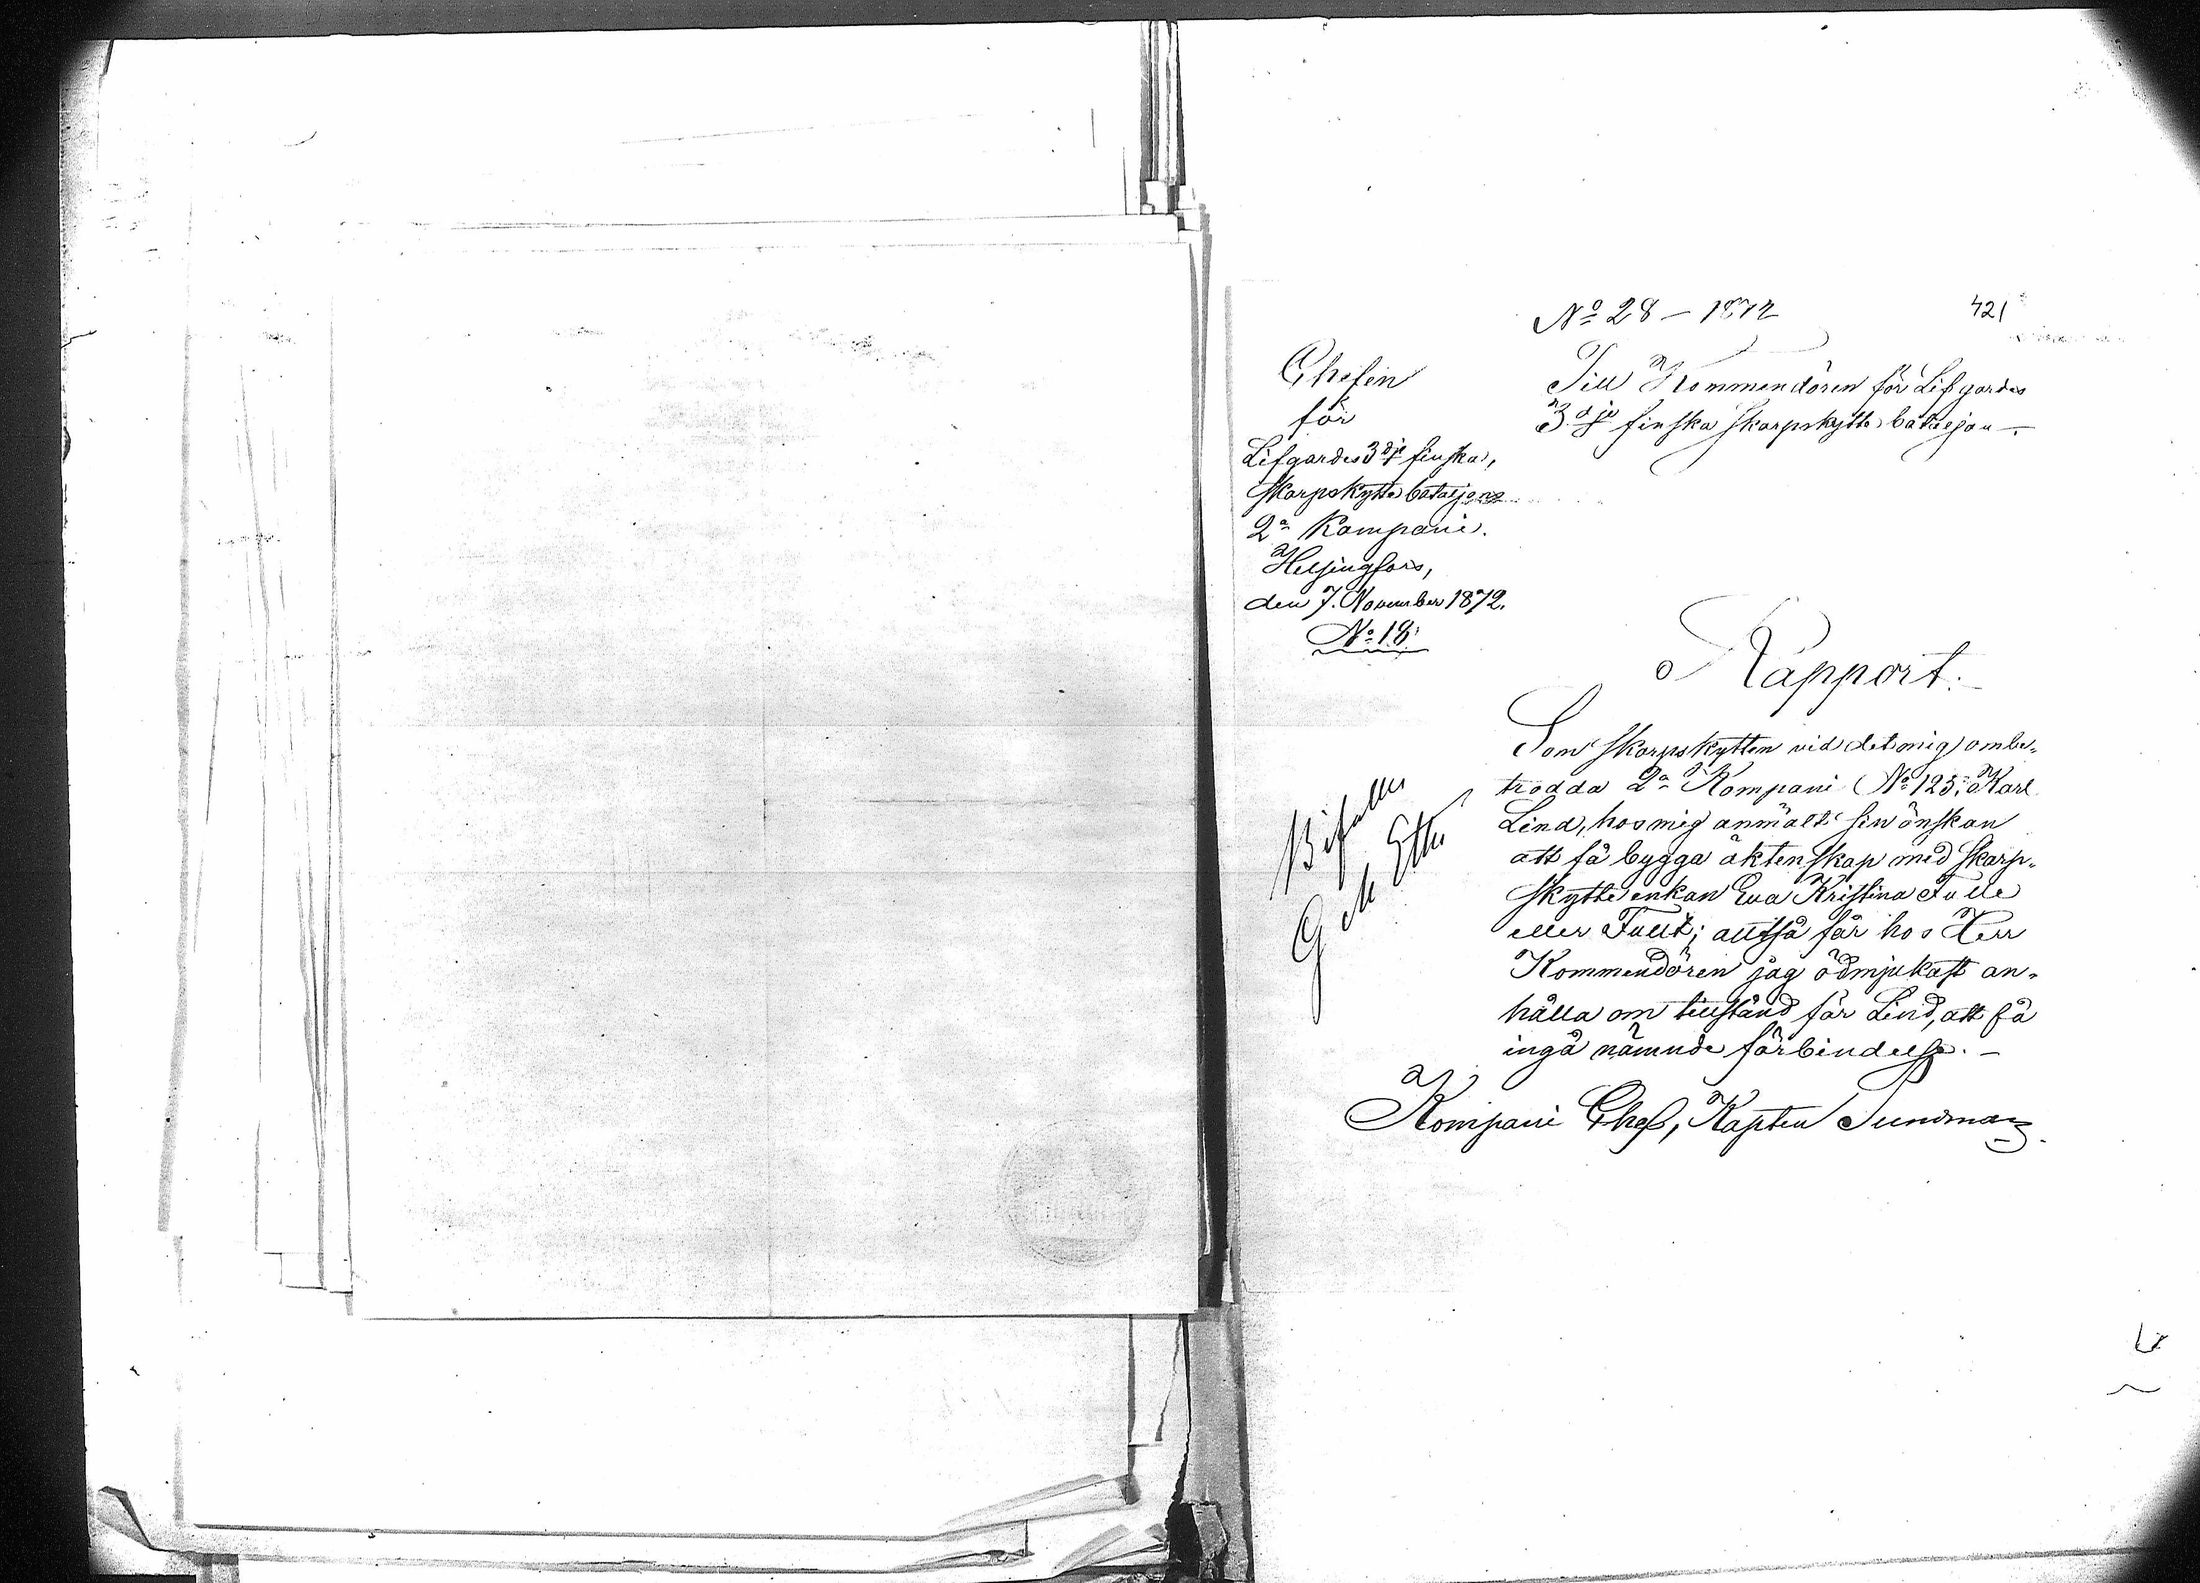 No 28 – 1872
421
Chefen
för
Lifgardes 3dje finska
Skarpskyttebataljons
2a Kompani.
Helsingfors,
den 7. November 1872.
No 18.
Till Kommendören för Lifgardes
3dje finska Skarpskytte bataljon.
Rapport.
Som Skarpskytten vid det mig ombe-
trodda 2a Kompani No 125, Karl
Lind, hos mig anmält sin önskan
att få bygga äktenskap med Skarp-
skytte enkan Eva Kristina Tulle
eller Tullt; alltså får hos Herr
Kommendören jag ödmjukast an-
hålla om tillstånd för Lind, att få
ingå nämnde förbindelse. –
Bifalles
Kompani Chef, Kapten Sundman.